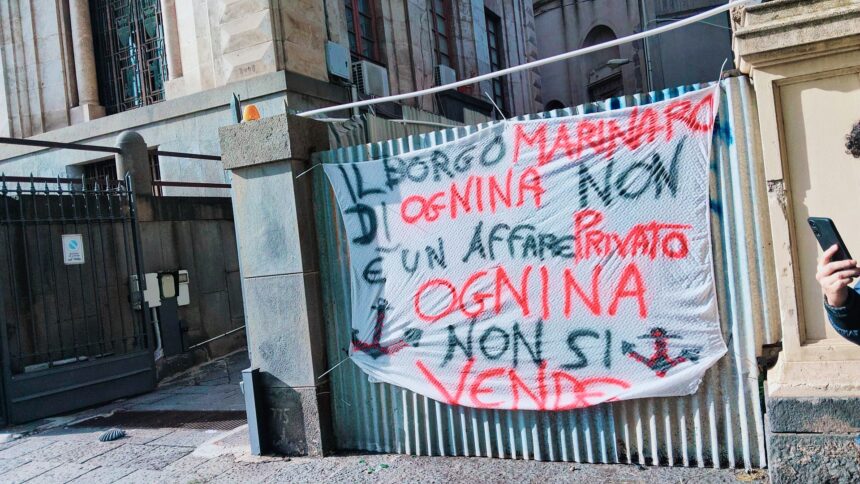 IL BORGO MARINARO
DI OGNINA NON
È UN AFFARE PRIVATO
OGNINA
NON SI
VENDE